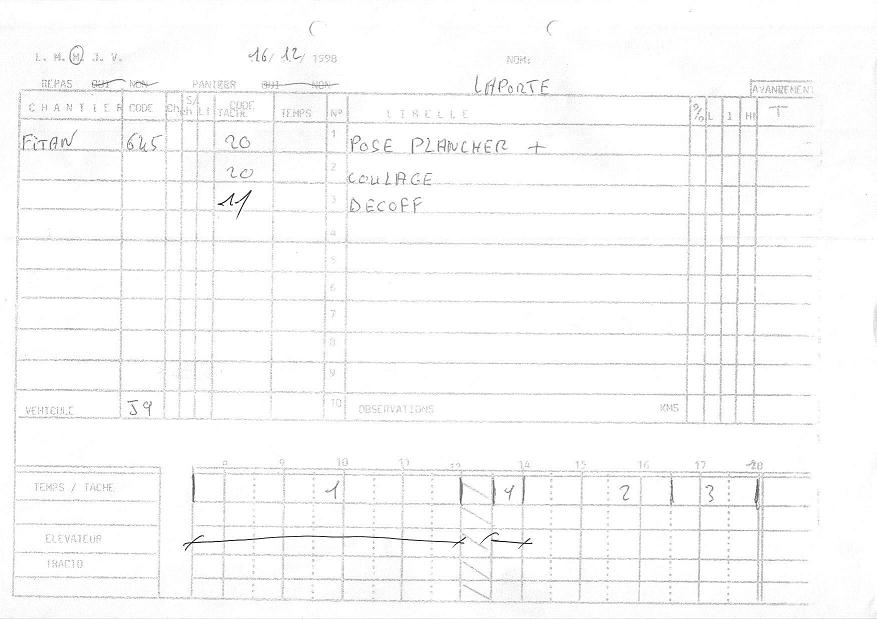 L. M. M. J. V. 16/ 12/ 1998 NOM:
REPAS OUI NON PANIER OUI NON LAPORTE AVANCEMENT
CHANTIER CODE Ch S/ch Lt CODE TACHE TEMPS N° LIBELLE % L J HR T
FITAN 645 20 1 POSE PLANCHER +
20 2 COULAGE
11 3 DECOFF
4
5
6
7
8
9
VEHICULE J9 10 OBSERVATIONS KMS
8 9 10 11 12 13 14 15 16 17 18
TEMPS / TACHE 1 1 2 3
ELEVATEUR
TRACTO